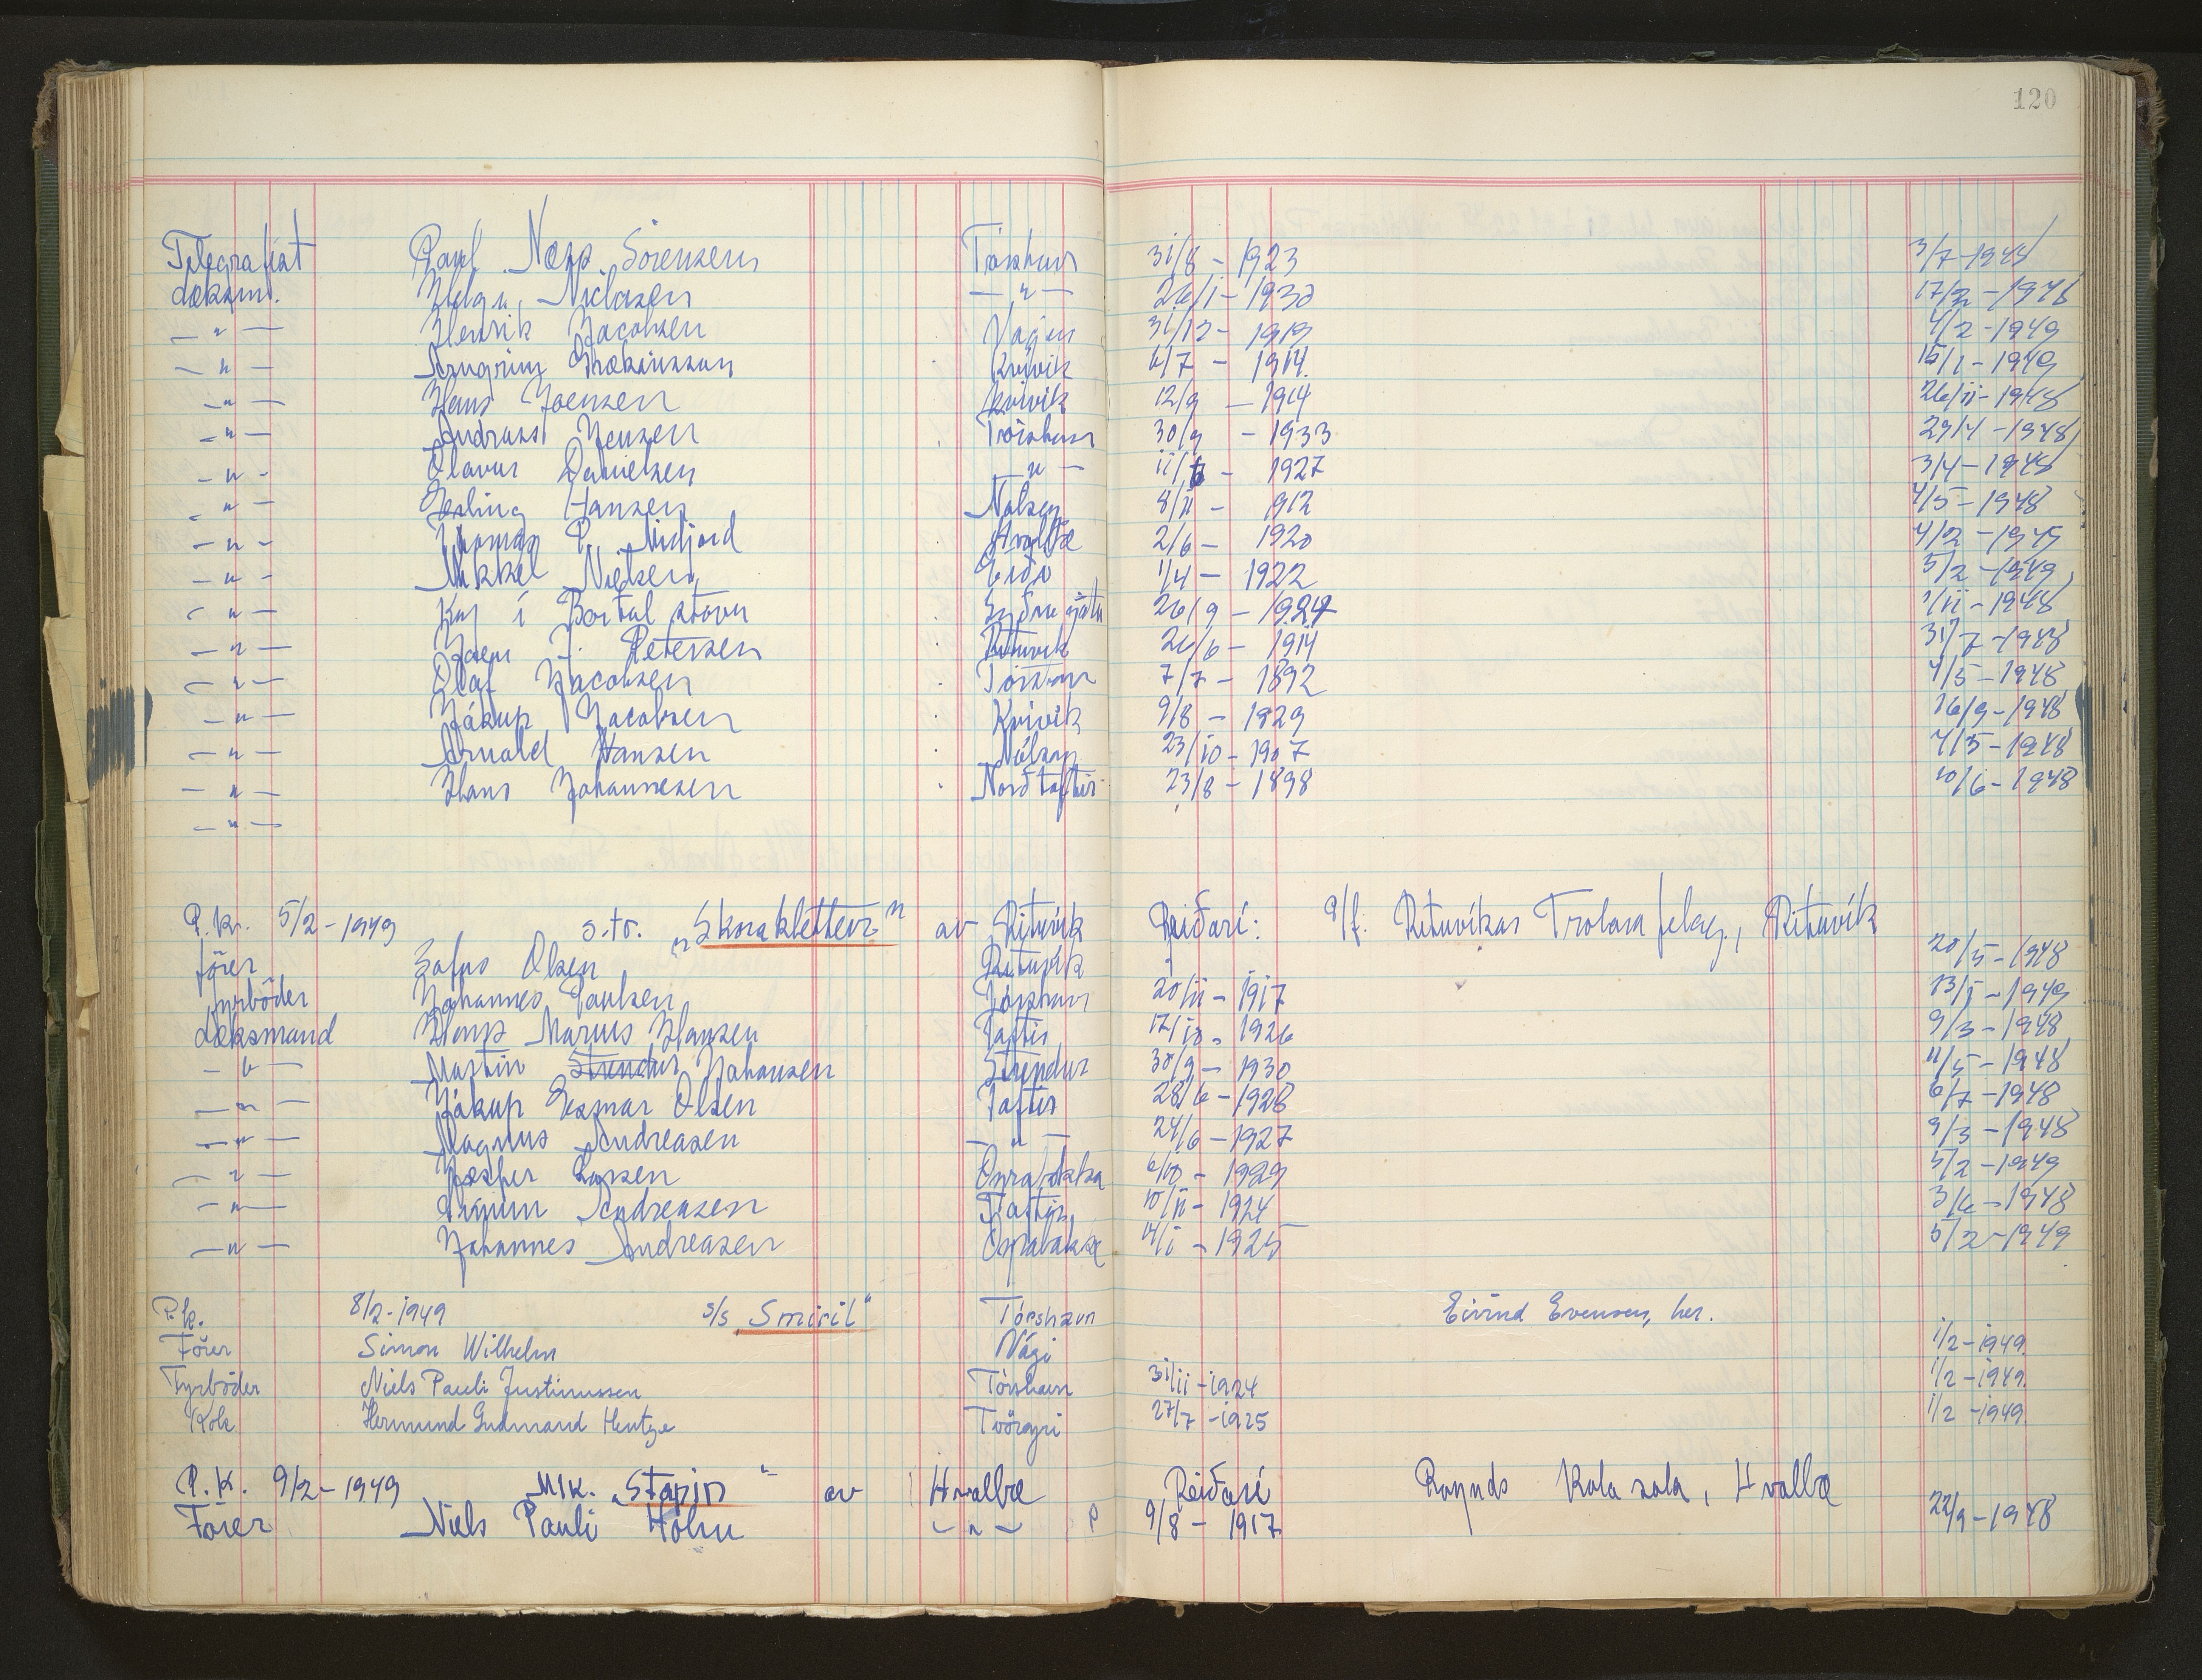 120
Telegrafist Paul Næss Sörensen Tórshavn 31/8 - 1923 3/7-1948
dæksm. Helgi Niclasen — " — 26/1 - 1930 17/2 - 1948
— " — Henrik Jacobsen Vágur 31/12 - 1919 4/2 - 1949
— " — Arngrim Kvívík 6/7 - 1914 15/1 - 1949
— " — Hans Joensen Kvívík 12/9 — 1914 26/11 - 1948
— " — Andrass Jensen Tórshavn 30/9 - 1933 29/4 - 1948
— " - Olavur Danielsen " — 11/ - 1927 3/4 - 1948
— " — Esling Hansen Nolsoy 8/11 - 1912 4/5 - 1948
— " - Thomas P. Nidjord Hvalbæ 2/6 - 1920 4/2 - 1949
— " - Mikkel Nielsen Eiði 1/4 - 1922 5/2 - 1949
— " — Kaj í Bartalsstovu Syðrugøtu 26/9 - 1924 1/11 - 1948
— " — Joen J. Petersen Rituvík 26/6 - 1914 31/7 - 1948
— " — Olaf Jacobsen Tórshavn 7/7 - 1892 4/5 - 1948
— " — Jákup Jacobsen Kvívík 9/8 - 1929 16/9 - 1948
— " — Arnold Hansen Nólsoy 23/10 - 1907 4/5 - 1948
— " — Hans Johannesen Norðtoftir 23/8 - 1898 10/6 - 1948
— " —
P.kr. 5/2 - 1949 s.tr. „Skoraklettur" av Rituvík Reiðarí: P/f. Rituvíkar Trolarafelag, Rituvík
förer Zofus Olsen Rituvík 20/5 - 1948
fyrböder Johannes Poulsen Tórshavn 20/11 - 1917 13/1 - 1949
dæksmand Hans Marius Hansen Toftir 17/10 - 1926 9/3 - 1948
— " — Martin Strendur Johansen Strendur 30/9 - 1930 11/5 - 1948
— " — Jákup Esmar Olsen Toftir 28/6 - 1928 6/7 - 1948
— " — Magnus Andreasen — " — 24/6 - 1927 9/3 - 1948
— " — Jesper Larsen 6/10 - 1929 5/2 - 1949
— " — Andreasen Toftir 10/11 - 1924 3/6 - 1948
— " — Johannes Andreasen 14/1 - 1925 5/2 - 1949
P.k. 8/2-1949 s/s „Smiril" Tórshavn Eivind Evensen, her.
Förer Simon Wilhelm Vági 1/2-1949
Fyrböder Niels Pauli Justinussen Tórshavn 31/11-1924 1/2-1949
Kok Hermund Gudmand Hentze Tvöroyri 27/7-1925 1/2-1949
P.K. 9/2-1949 M/k. „Stapin" av Hvalbæ Reiðarí Roynds Kola sola, Hvalbæ
Förer Niels Pauli Holm — " — 9/8 - 1917 22/9 - 1948